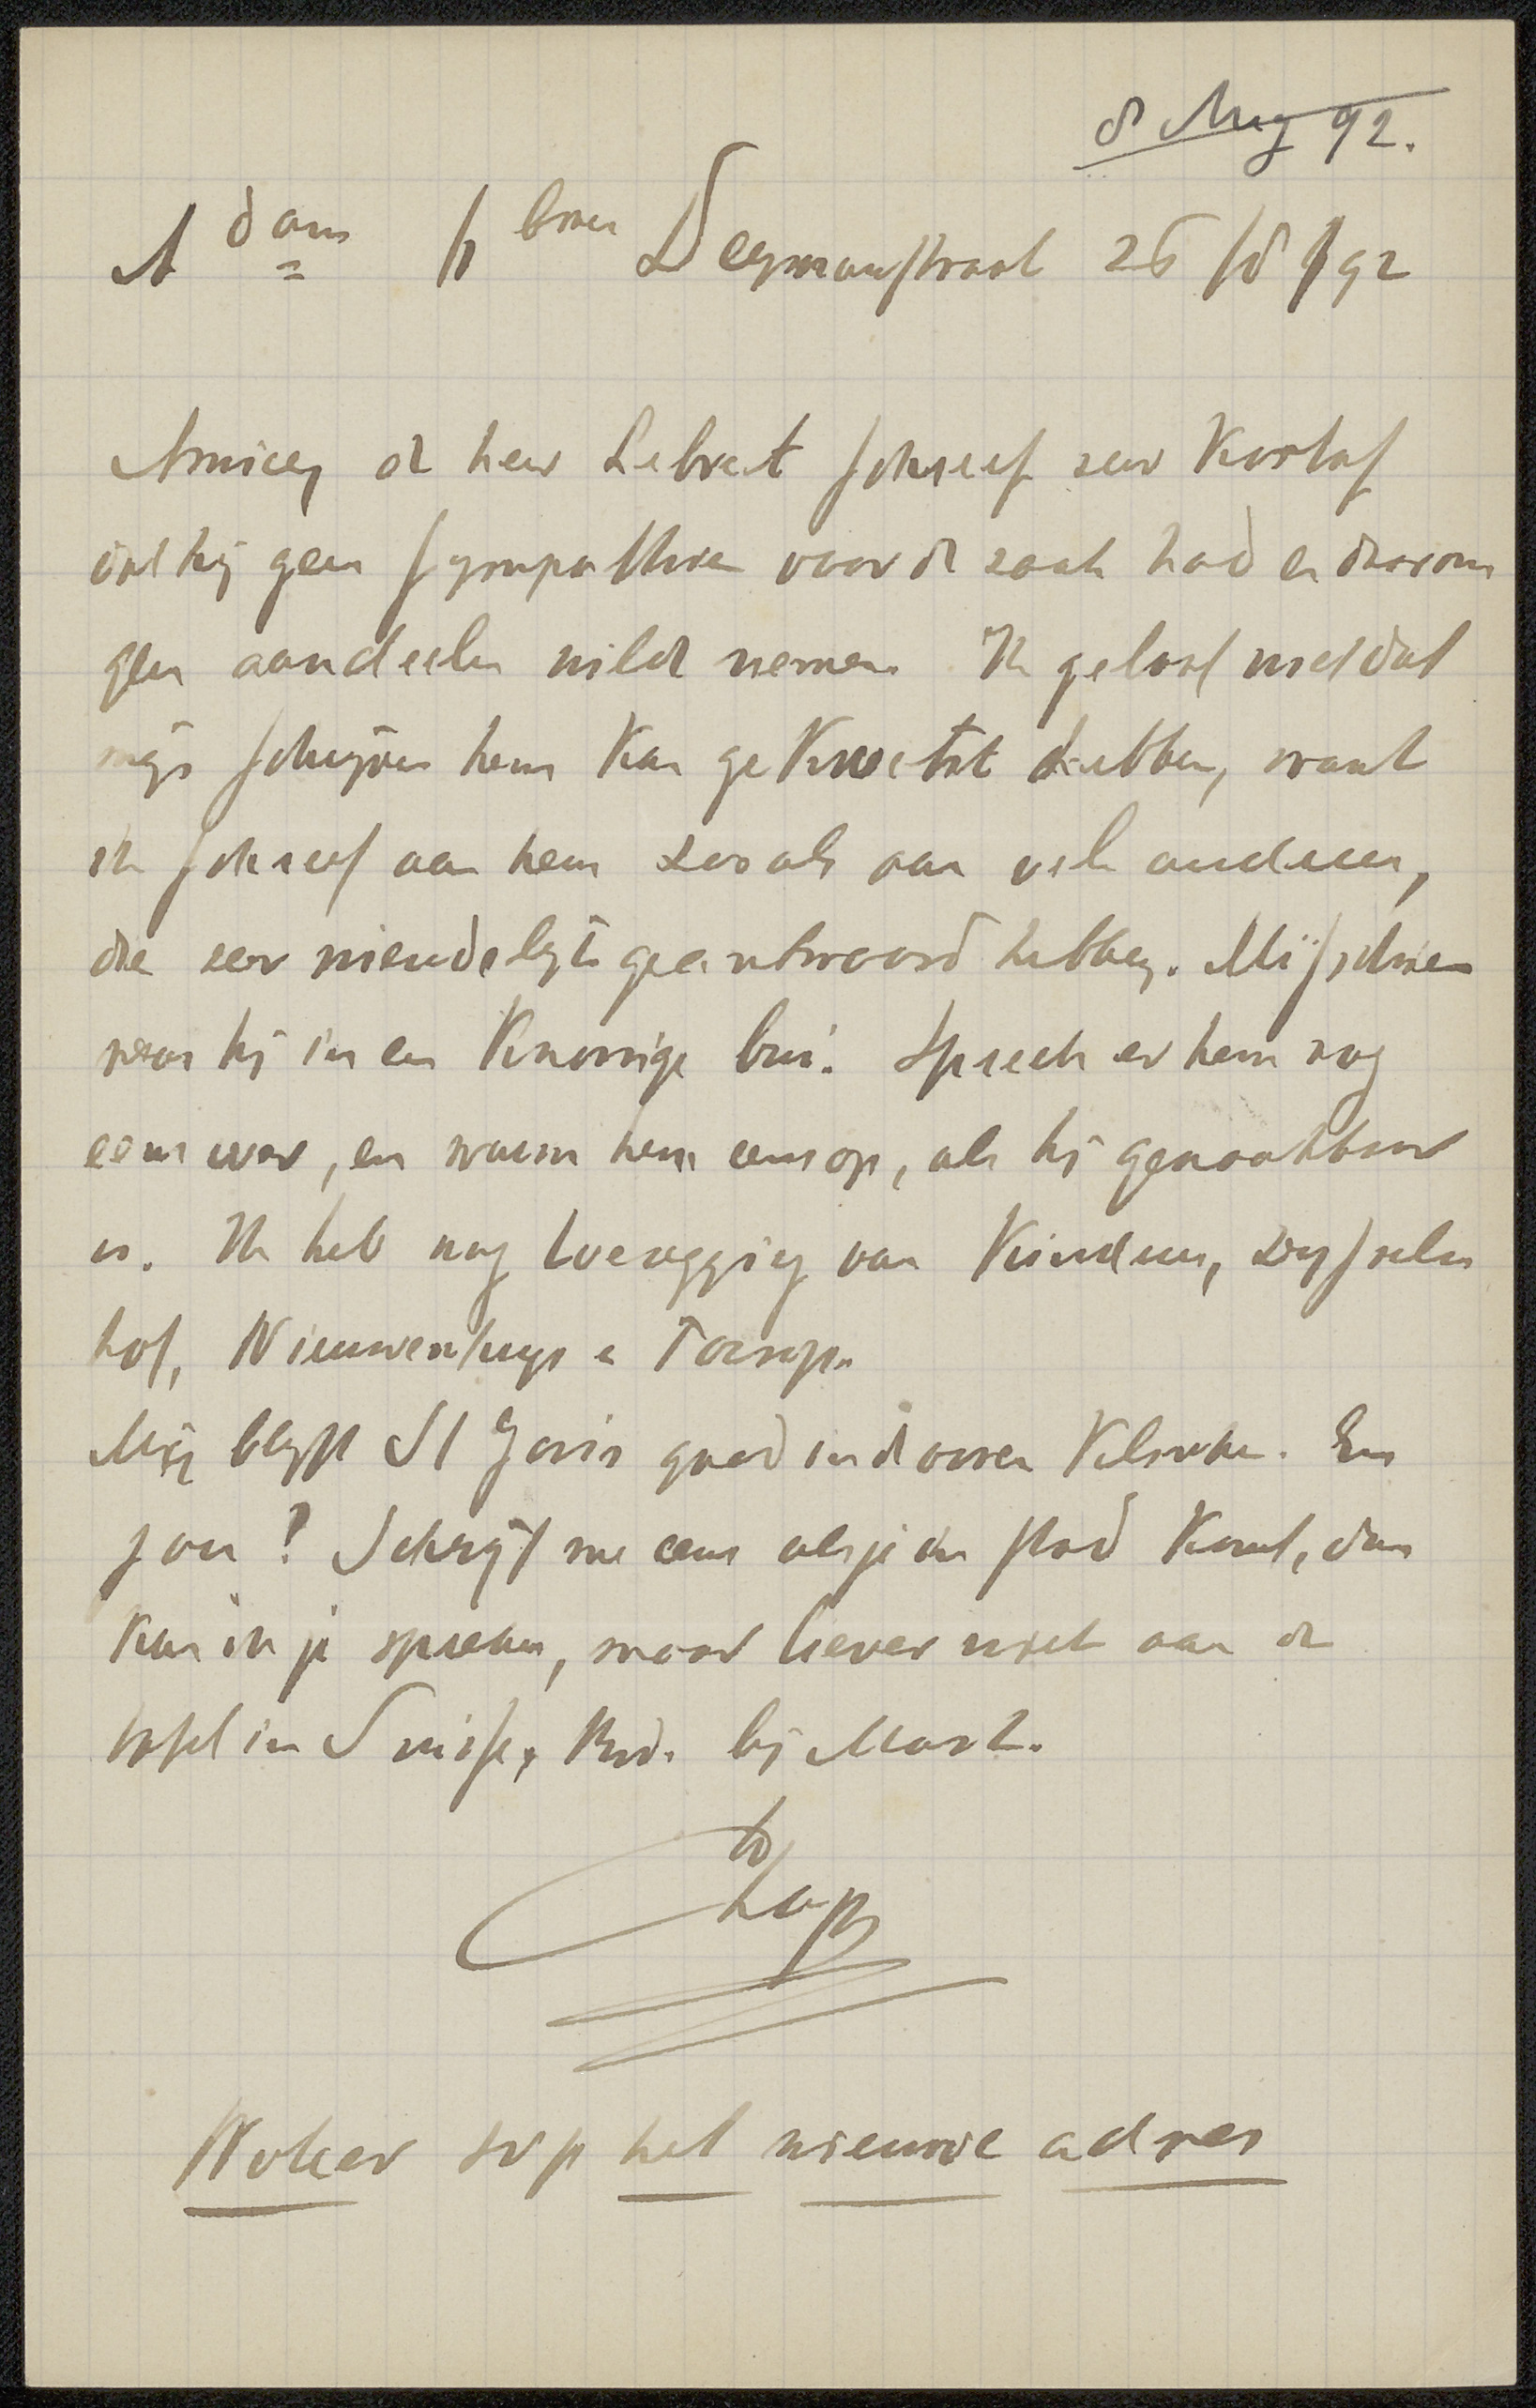 8 Aug 92.
Adam h Deymanstraat 26 /8 / 92
Amice, de heer Lebret schreef zeer kortaf
dat hij geen sympathien voor de zaak had en daarom
geen aandeelen wilde nemen. Ik geloof niet dat
mijn schrijven hem kan gekwetst hebben, want
ik schreef aan hem zooals aan vele anderen,
die zeer vriendelijk geantwoord hebben. Misschien
was hij in een knorrige bui. Spreek er hem nog
eens over, en warm hem eens op, als hij genaakbaar
is. Ik heb nog toezegging van Kinderen, Dysselen
hof, Nieuwenhuys & Toorop.
Mij blijft St Joris goed in de ooren klinken. En
jou? Schrijf me eens als je in stad komt, dan
kan ik je spreken, maar liever niet aan de
tafel in Suisse, bij Mast.
Flap
Noteer svp het nieuwe adres